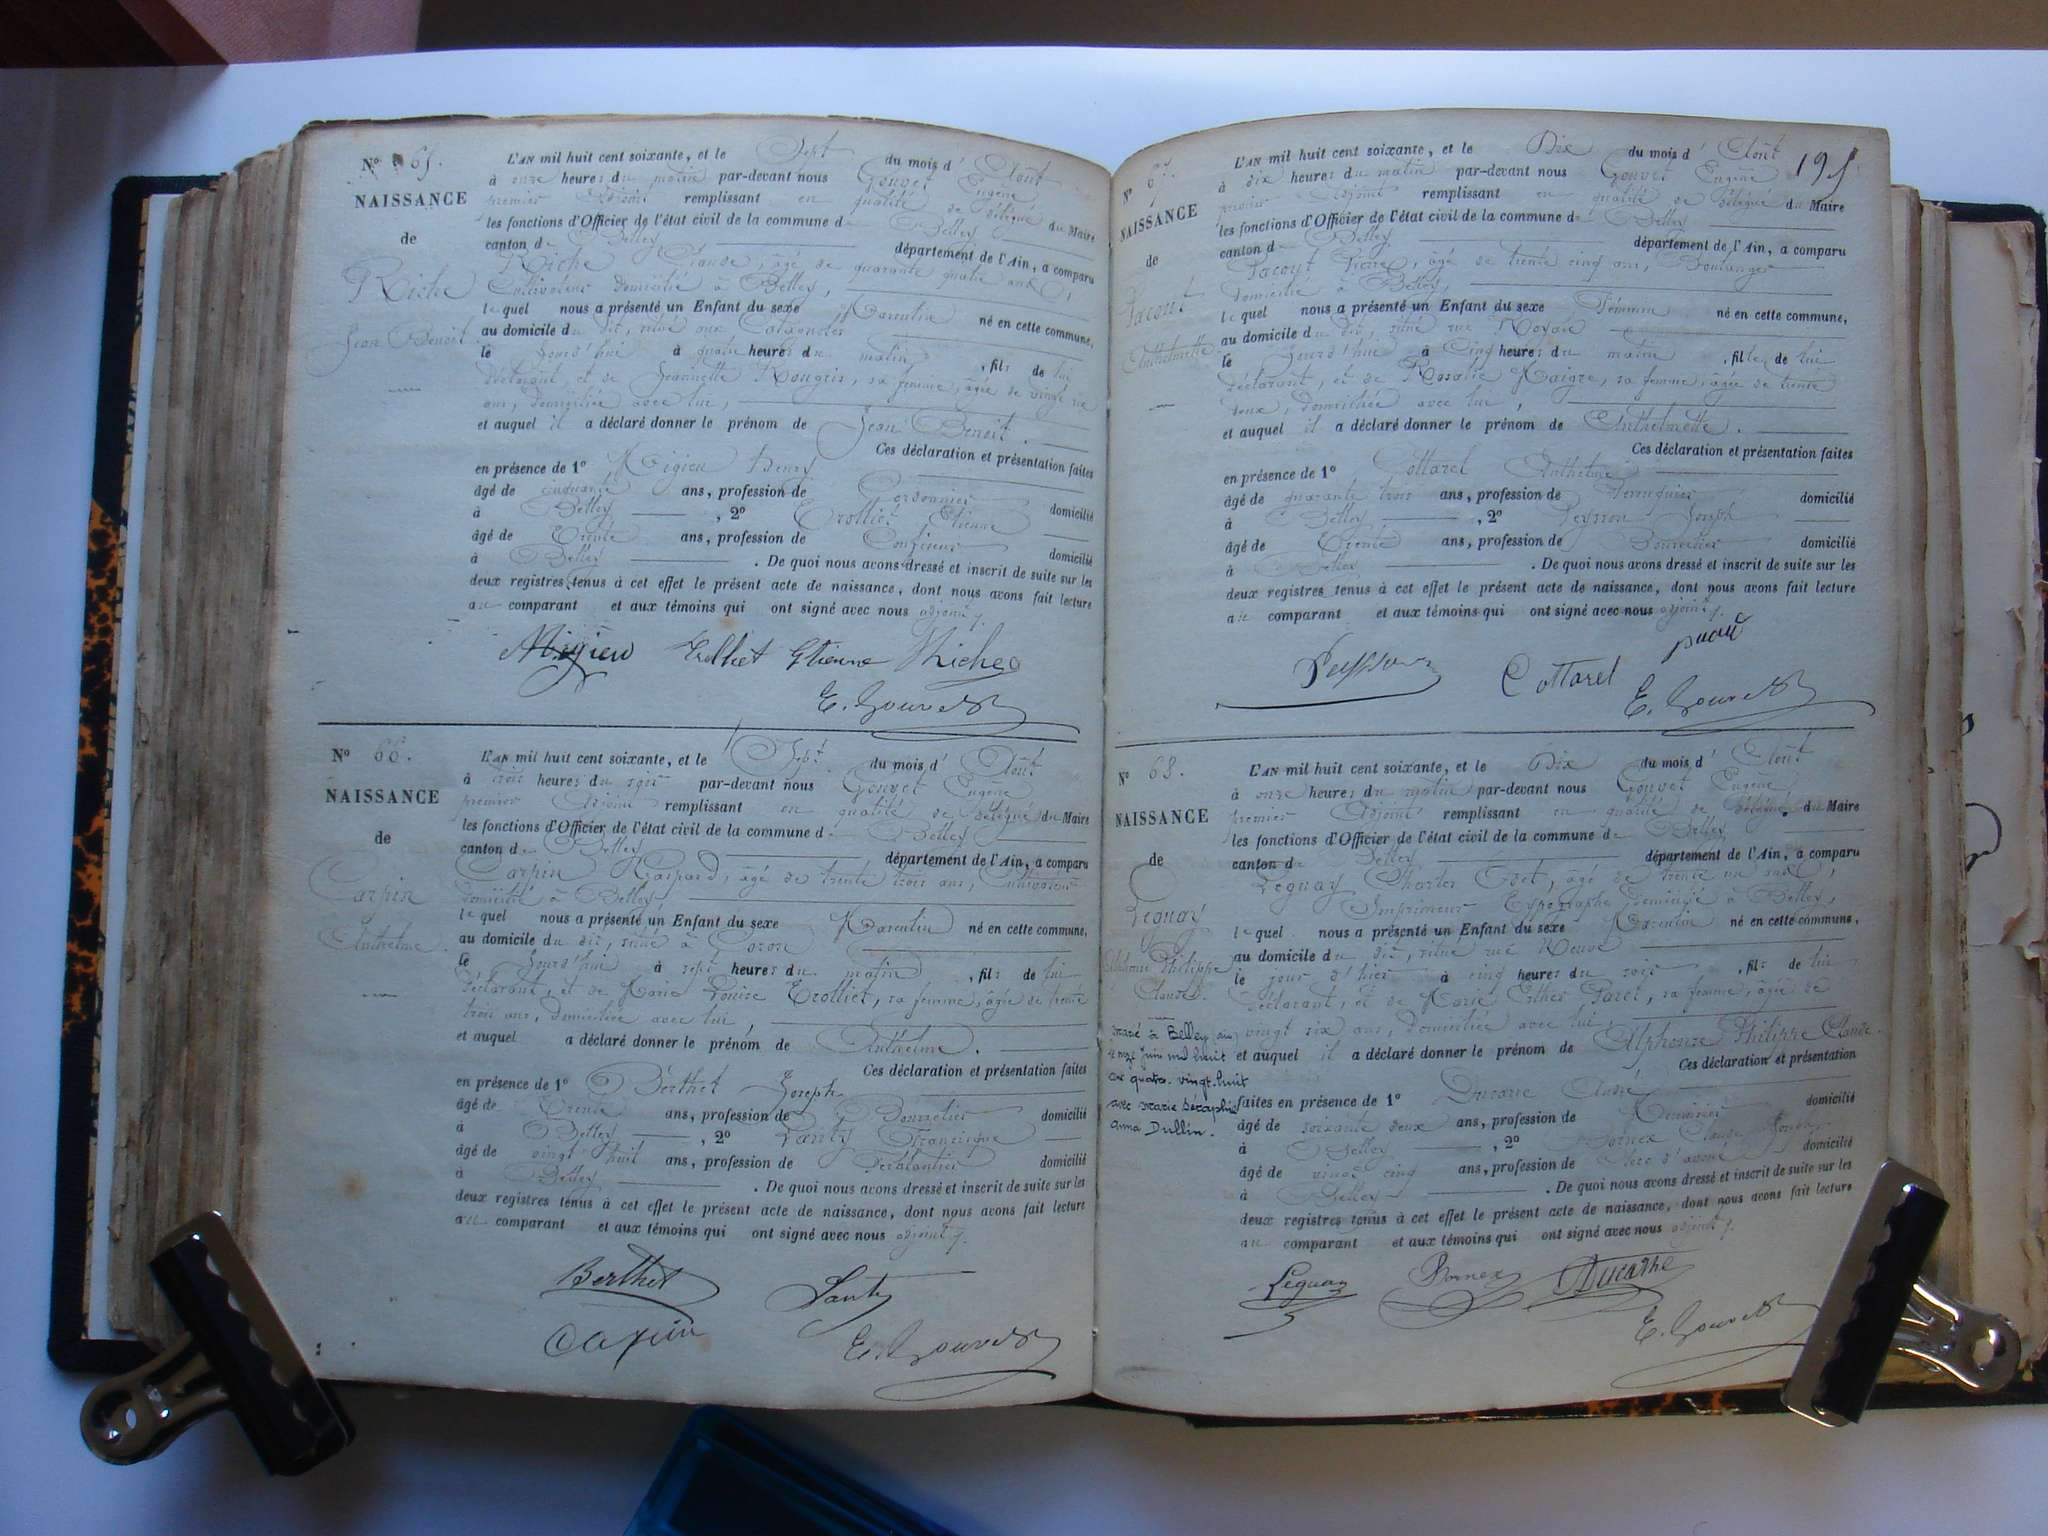 Nº 65.
NAISSANCE
de
Riche
Jean Benoit
L'AN mil huit cent soixante, et le Sept du mois d'Août
à onze heures du matin par-devant nous Gouvet Eugène
premier Adjoint remplissant en qualité de délégué du Maire
les fonctions d'Officier de l'état civil de la commune de Belley
canton de Belley département de l'Ain, a comparu
Riche âgé de quarante quatre ans,
Cultivateur domicilié à Belley,
lequel nous a présenté un Enfant du sexe Masculin né en cette commune,
au domicile du dit, situé aux
le jourd'hui à quatre heures du matin, fils de lui
déclarant, et de Jeannette sa femme, âgée de vingt
ans, domiciliée avec lui,
et auquel il a déclaré donner le prénom de Jean Benoit.
Ces déclaration et présentation faites
en présence de 1º Migieu Henry
âgé de cinquante ans, profession de Cordonnier domicilié
à Belley, 2º Trolliet Etienne
âgé de Trente ans, profession de domicilié
à Belley. De quoi nous avons dressé et inscrit de suite sur les
deux registres tenus à cet effet le présent acte de naissance, dont nous avons fait lecture
au comparant et aux témoins qui ont signé avec nous adjoint.
Migieu Trolliet Etienne Riche
E. Gouvet
Nº 66.
NAISSANCE
de
Carpin
Anthelme.
L'AN mil huit cent soixante, et le Sept du mois d'Août
à trois heures du soir par-devant nous Gouvet Eugène
premier Adjoint remplissant en qualité de délégué du Maire
les fonctions d'Officier de l'état civil de la commune de Belley
canton de Belley département de l'Ain, a comparu
Carpin Gaspard, âgé de trente trois ans, Cultivateur
domicilié à Belley
lequel nous a présenté un Enfant du sexe Masculin né en cette commune,
au domicile du dit, situé à Coron
le jourd'hui à sept heures du matin, fils de lui
déclarant, et de Marie Louise Trolliet, sa femme, âgée de trente
trois ans, domiciliée avec lui
et auquel a déclaré donner le prénom de Anthelme.
Ces déclaration et présentation faites
en présence de 1º Berthet Joseph
âgé de Trente ans, profession de Bourrelier domicilié
à Belley, 2º Lanty Francisque
âgé de vingt huit ans, profession de Ferblantier domicilié
à Belley. De quoi nous avons dressé et inscrit de suite sur les
deux registres tenus à cet effet le présent acte de naissance, dont nous avons fait lecture
au comparant et aux témoins qui ont signé avec nous adjoint.
Berthet Lanty
Carpin E. Gouvet
195
Nº 67.
NAISSANCE
de
Pacout
Anthelmette
L'AN mil huit cent soixante, et le Dix du mois d'Août
à dix heures du matin par-devant nous Gouvet Eugène
premier Adjoint remplissant en qualité de délégué du Maire
les fonctions d'Officier de l'état civil de la commune de Belley
canton de Belley département de l'Ain, a comparu
Pacout Pierre, âgé de trente cinq ans, Boulanger
domicilié à Belley,
lequel nous a présenté un Enfant du sexe Féminin né en cette commune,
au domicile du dit, situé rue Royale
le jourd'hui à Cinq heures du matin, fille de lui
déclarant, et de Rosalie Maigre, sa femme, âgée de trente
deux, domiciliée avec lui,
et auquel il a déclaré donner le prénom de Anthelmette.
Ces déclaration et présentation faites
en présence de 1º Cottarel Anthelme
âgé de quarante trois ans, profession de Perruquier domicilié
à Belley, 2º Peysson Joseph
âgé de Trente ans, profession de Bourrelier domicilié
à Belley. De quoi nous avons dressé et inscrit de suite sur les
deux registres tenus à cet effet le présent acte de naissance, dont nous avons fait lecture
au comparant et aux témoins qui ont signé avec nous adjoint.
Peysson Cottarel pacout
E. Gouvet
Nº 68.
NAISSANCE
de
Leguay
Alphonse Philippe
Claude.
marié à Belley au
onze juin mil huit
cent quatre-vingt-huit
avec marie Séraphine
anna Dullin.
L'AN mil huit cent soixante, et le Dix du mois d'Août
à onze heures du matin par-devant nous Gouvet Eugène
premier Adjoint remplissant en qualité de délégué du Maire
les fonctions d'Officier de l'état civil de la commune de Belley
canton de Belley département de l'Ain, a comparu
Leguay Charles âgé de trente un ans,
Imprimeur Typographe domicilié à Belley,
lequel nous a présenté un Enfant du sexe Masculin né en cette commune,
au domicile du dit, situé rue Neuve
le jour d'hier à cinq heures du soir, fils de lui
déclarant, et de Marie Esther Paret, sa femme, âgée de
vingt six ans, domiciliée avec lui,
et auquel il a déclaré donner le prénom de Alphonse Philippe Claude.
Ces déclaration et présentation
faites en présence de 1º Ducarre Claude
âgé de soixante deux ans, profession de Menuisier domicilié
à Belley, 2º Bornex Claude Joseph
âgé de vingt cinq ans, profession de Clerc d'avoué domicilié
à Belley. De quoi nous avons dressé et inscrit de suite sur les
deux registres tenus à cet effet le présent acte de naissance, dont nous avons fait lecture
au comparant et aux témoins qui ont signé avec nous adjoint.
Leguay Bornex Ducarre
E. Gouvet